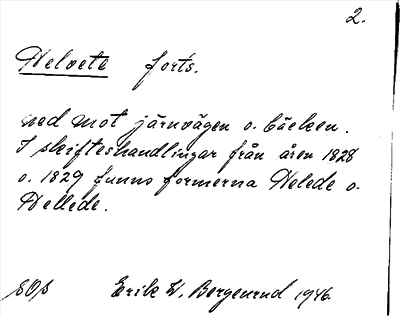 2.
Helvete forts.
ned mot järnvägen o. bäcken.
I skifteshandlingar från åren 1828
o. 1829 funno formerna Helede o.
Hellede.
Erik W. Bergenrud 1946.